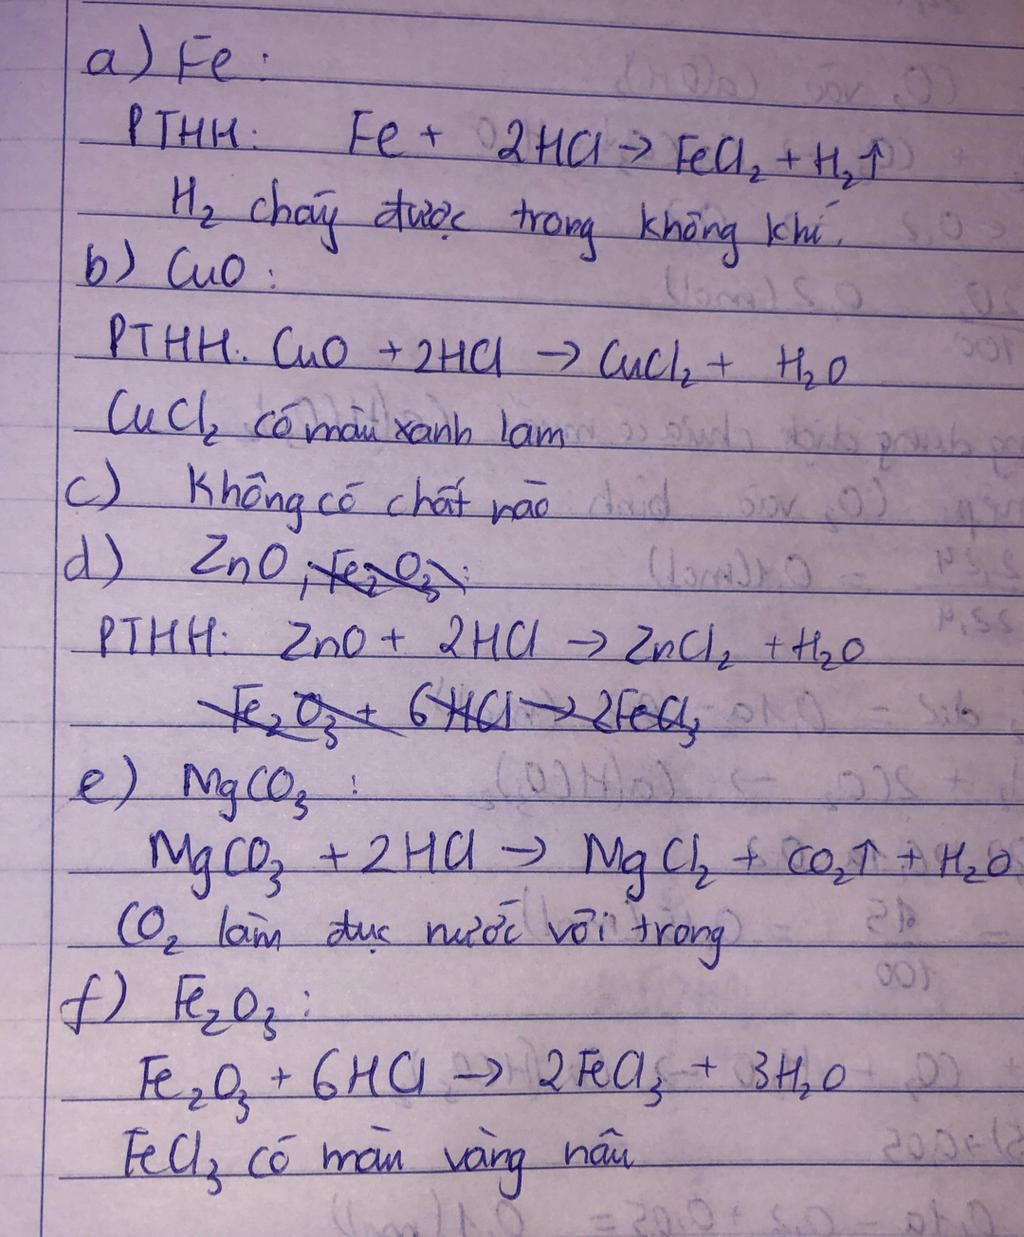 a) Fe :
PTHH: Fe + 2HCl → FeCl₂ + H₂↑
H₂ cháy được trong không khí.
b) CuO :
PTHH: CuO + 2HCl → CuCl₂ + H₂O
CuCl₂ có màu xanh lam
c) Không có chất nào
d) ZnO ; Fe₂O₃ :
PTHH: ZnO + 2HCl → ZnCl₂ + H₂O
Fe₂O₃ + 6HCl → 2FeCl₃
e) MgCO₃ :
MgCO₃ + 2HCl → MgCl₂ + CO₂↑ + H₂O
CO₂ làm đục nước vôi trong
f) Fe₂O₃ :
Fe₂O₃ + 6HCl → 2FeCl₃ + 3H₂O
FeCl₃ có màu vàng nâu